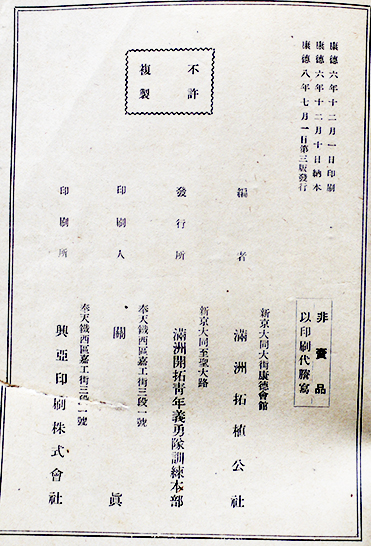 康德六年十二月一日印刷
康德六年十二月十日納本
康德八年七月一日第三版發行
不許
複製
非賣品
以印刷代謄寫
新京大同大街康德會館
編者 滿洲拓植公社
新京大同至聖大路
發行所 滿洲開拓青年義勇隊訓練本部
奉天鐵西區嘉工街三段二號
印刷人 關 眞
奉天鐵西區嘉工街三段二號
印刷所 興亞印刷株式會社